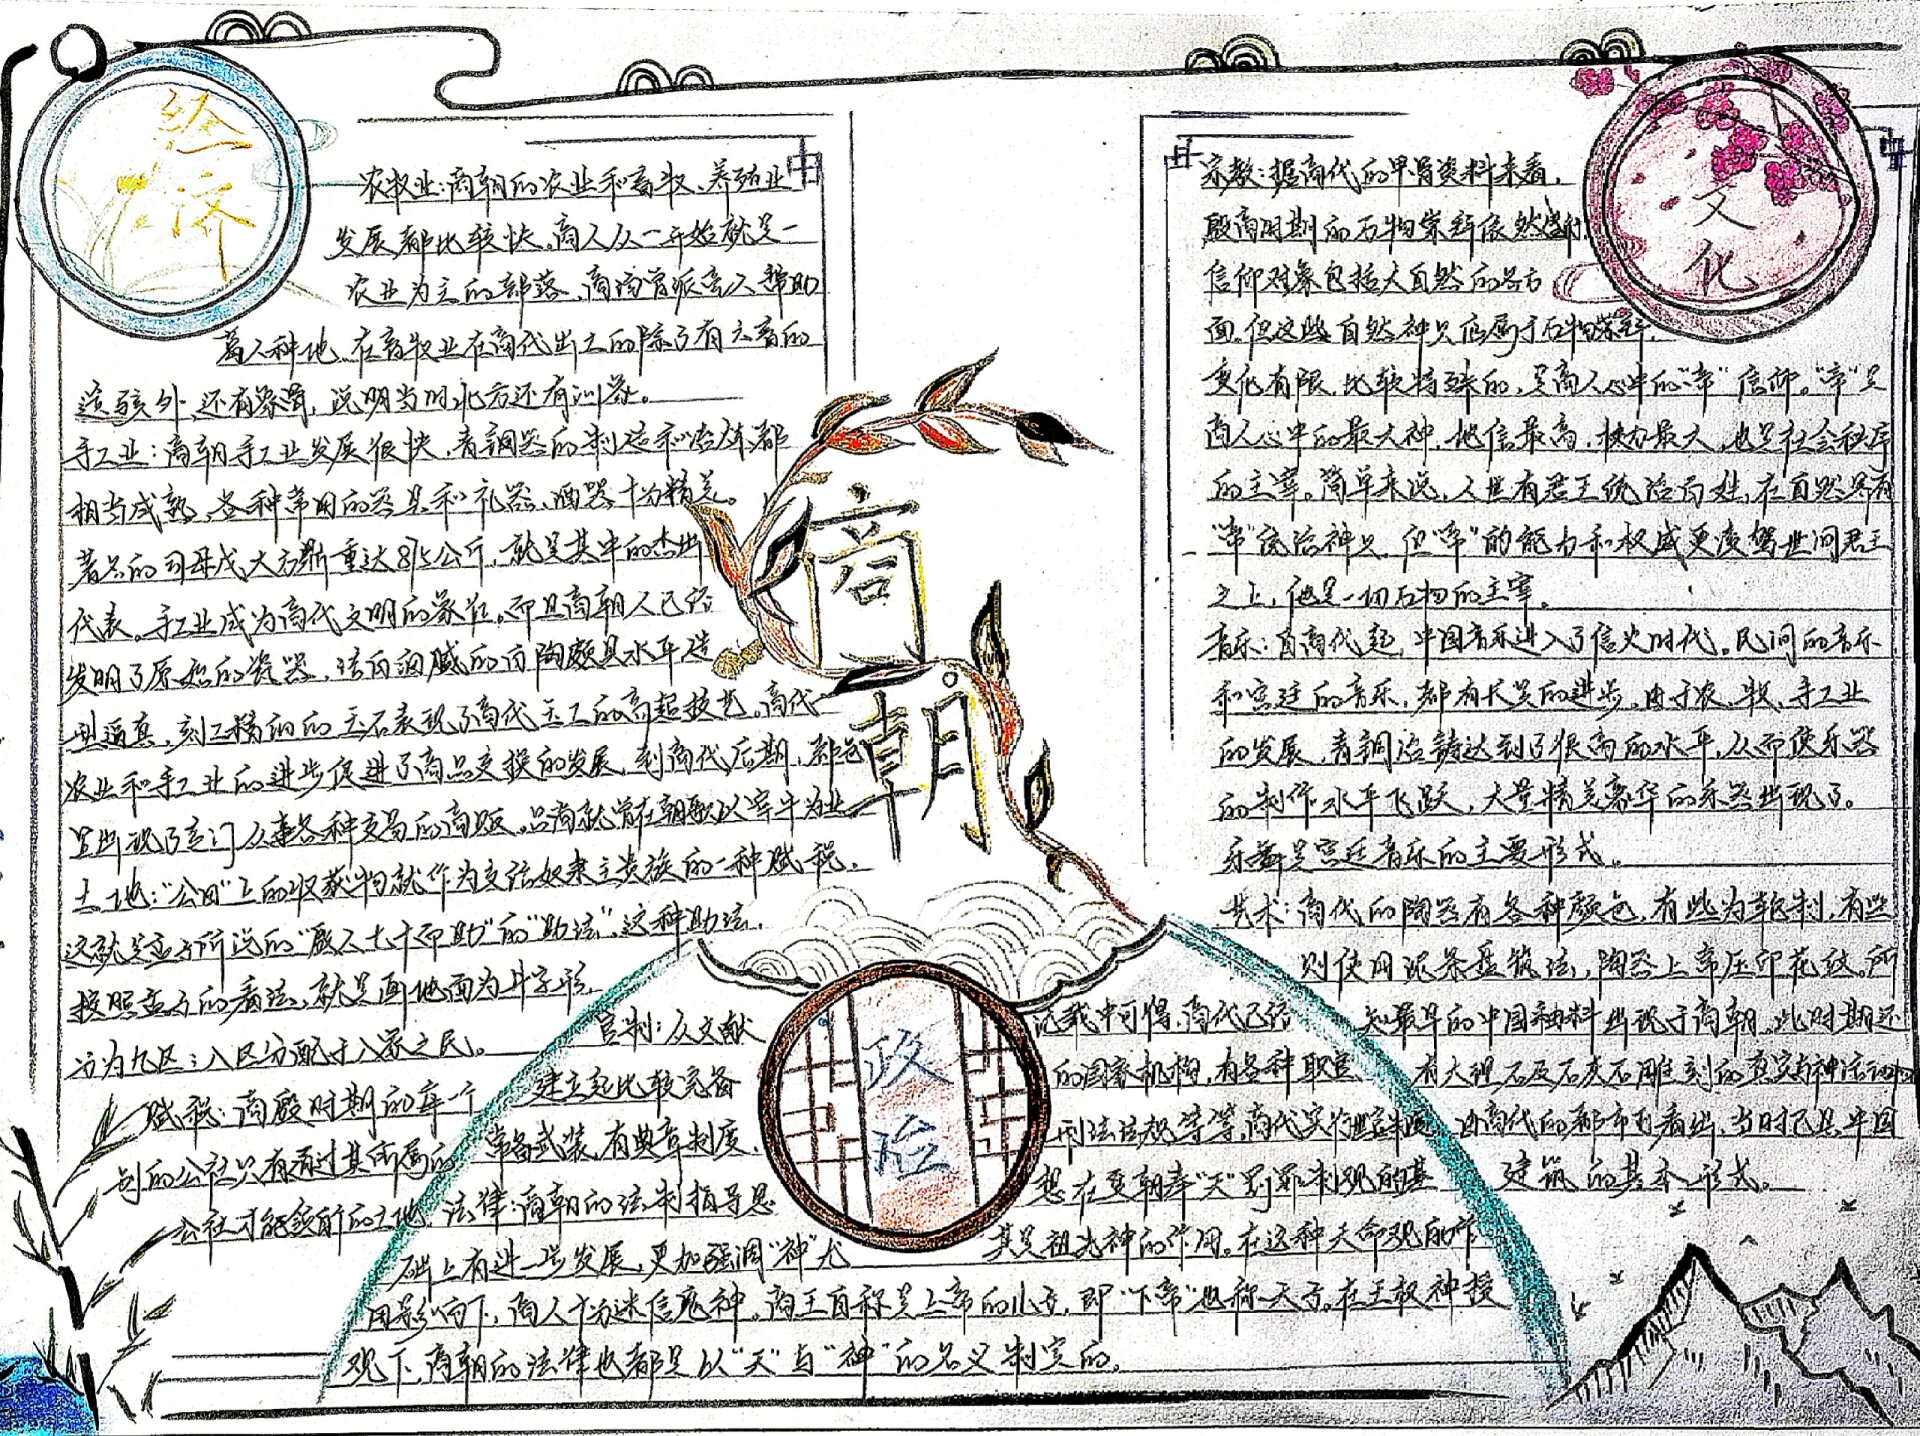 经济
农牧业：商朝的农业和畜牧、养殖业
发展都比较快。商人从一开始就是一
农业为主的部落，商汤曾派亳人帮助
葛人种地。在畜牧业在商代出土的除了有六畜的
遗骸外，还有象骨，说明当时北方还有训象。
手工业：商朝手工业发展很快，青铜器的制造和冶炼都
相当成熟，各种常用的器具和礼器、酒器十分精美。
著名的司母戊大方鼎重达875公斤，就是其中的杰出
代表。手工业成为商代文明的象征。而且商朝人已经
发明了原始的瓷器，洁白细腻的白陶颇具水平造
型逼真，刻工精细的玉石表现了商代玉工的高超技艺。商代
农业和手工业的进步促进了商品交换的发展，到商代后期，都邑
里出现了专门从事各种交易的商贩。吕尚就曾在朝歌以宰牛为业。
土地："公田"上的收获物就作为交给奴隶主贵族的一种赋税。
这就是孟子所说的"殷人七十而助"的"助法"。这种助法，
按照孟子的看法，就是画地面为井字形，
分为九区；八区分配于八家之民。
赋税：商殷时期的每一个
别的公社只有通过其所属的
公社才能领所的土地
商朝
文化
宗教：据商代的甲骨资料来看，
殷商时期的石物崇拜依然盛行，
信仰对象包括大自然的各方
面。但这些自然神只依属于石物崇拜，
变化有限。比较特殊的，是商人心中的"帝"信仰。"帝"是
商人心中的最大神，地位最高，权力最大，也是社会秩序
的主宰。简单来说，人世有君王统治百姓，在自然界有
"帝"统治神只，但"帝"的能力和权威更凌驾世间君王
之上，他是一切石物的主宰。
音乐：自商代起，中国音乐进入了信史时代。民间的音乐
和宫廷的音乐，都有长足的进步。由于农、牧、手工业
的发展，青铜冶铸达到了很高的水平，从而使乐器
的制作水平飞跃，大量精美豪华的乐器出现了。
乐舞是宫廷音乐的主要形式。
艺术：商代的陶器有各种颜色，有些为轮制，有些
则使用泥条盘筑法，陶器上常压印花纹。所
知最早的中国釉料出现于商朝。此时期还
有大理石及石灰石雕刻的真实与神话动物
由商代的都市可看出，当时已具中国
建筑的基本形式。
政治
官制：从文献记载中可得，商代已经
建立起比较完备的国家机构，有各种职官
常备武装，有典章制度、刑法法规等等。商代实行世官制度
法律：商朝的法制指导思想在夏朝奉"天"罚罪制观的基
础上有进一步发展，更加强调"神"尤其是祖先神的作用。在这种天命观的作
用影响下，商人十分迷信鬼神。商王自称是上帝的儿子，即"下帝"也称天子。在王权神授
观下，商朝的法律也都是以"天"与"神"的名义制定的。